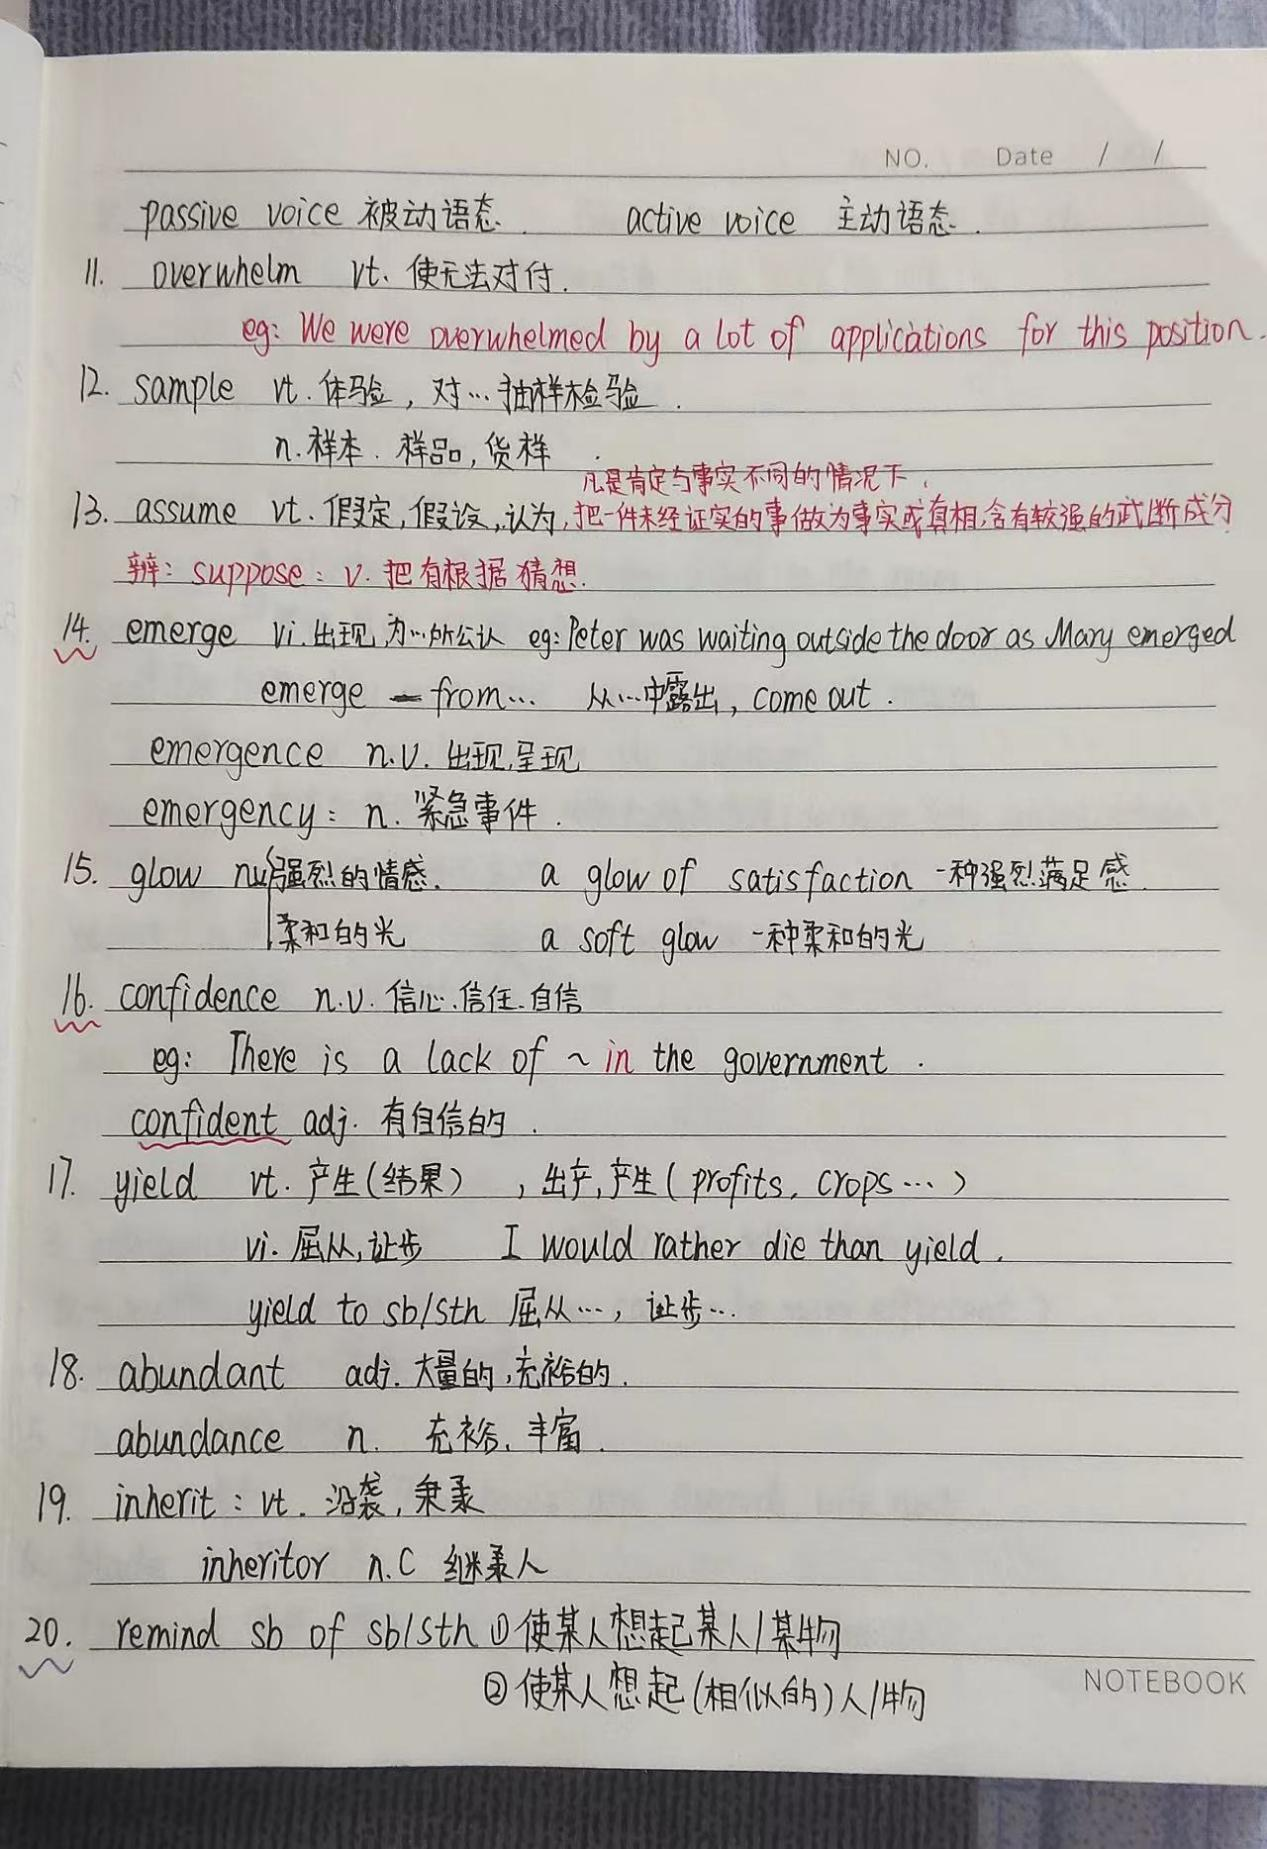 NO. Date / /
passive voice 被动语态. active voice 主动语态.
11. overwhelm vt. 使无法对付.
eg: We were overwhelmed by a lot of applications for this position.
12. sample vt. 体验, 对…抽样检验.
n. 样本. 样品, 货样.
凡是肯定与事实不同的情况下,
13. assume vt. 假定, 假设, 认为, 把一件未经证实的事做为事实或真相, 含有较强的武断成分
辨: suppose: v. 把有根据猜想.
14. emerge vi. 出现, 为…所公认 eg: Peter was waiting outside the door as Mary emerged
emerge — from… 从…中露出, come out.
emergence n.U. 出现, 呈现
emergency: n. 紧急事件.
15. glow nu 强烈的情感. a glow of satisfaction 一种强烈满足感.
柔和的光 a soft glow 一种柔和的光
16. confidence n.U. 信心. 信任. 自信
eg: There is a lack of ~ in the government.
confident adj. 有自信的.
17. yield vt. 产生(结果), 出产, 产生(profits, crops…)
vi. 屈从, 让步 I would rather die than yield.
yield to sb/sth 屈从…, 让步…
18. abundant adj. 大量的, 充裕的.
abundance n. 充裕, 丰富.
19. inherit: vt. 沿袭, 秉承
inheritor n.C 继承人
20. remind sb of sb/sth ①使某人想起某人/某物
②使某人想起(相似的)人/物
NOTEBOOK